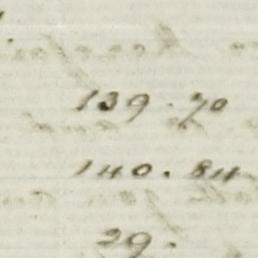 139.70
140.84
29.